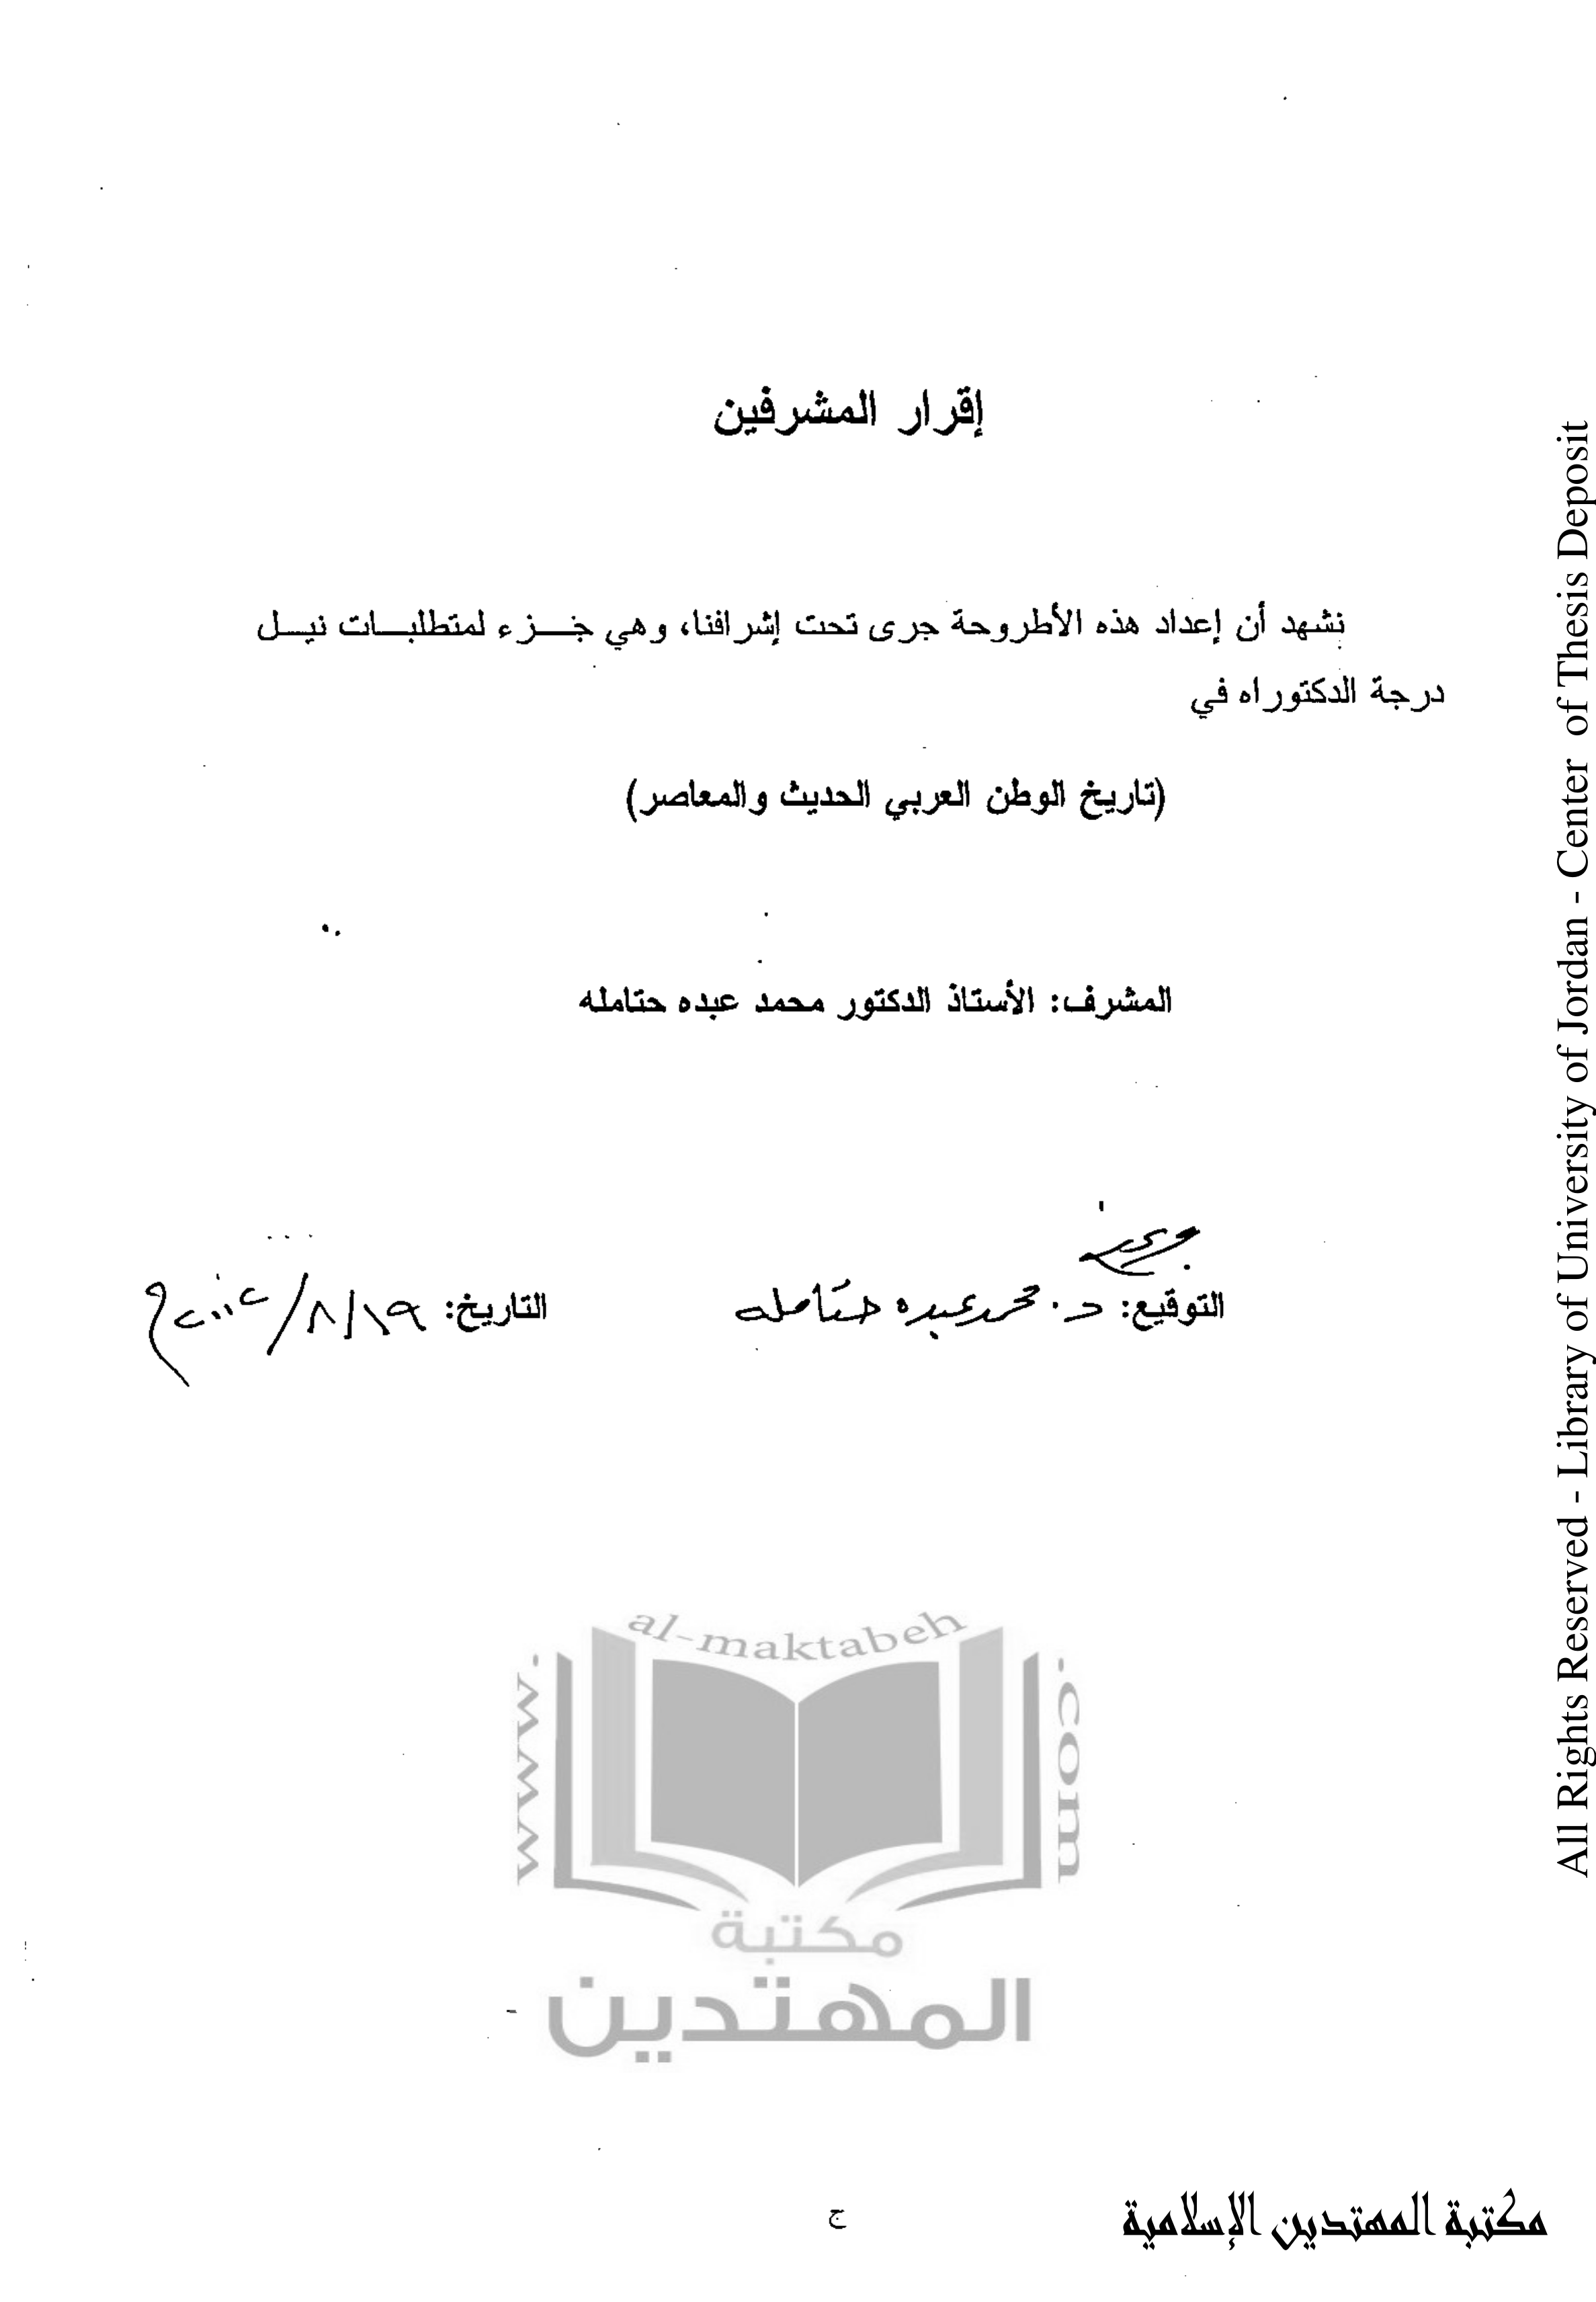 إقرار المشرفين
نشهد أن إعداد هذه الأطروحة جرى تحت إشرافنا، وهي جزء لمتطلبات نيل
درجة الدكتوراه في
(تاريخ الوطن العربي الحديث والمعاصر)
المشرف: الأستاذ الدكتور محمد عبده حتامله
التوقيع: د. محمد عبده حتامله
التاريخ: ١٩/٨/٢٠٠٢م
www.al-maktabeh.com
مكتبة
المهتدين
ج
مكتبة المهتدين الإسلامية
All Rights Reserved - Library of University of Jordan - Center of Thesis Deposit